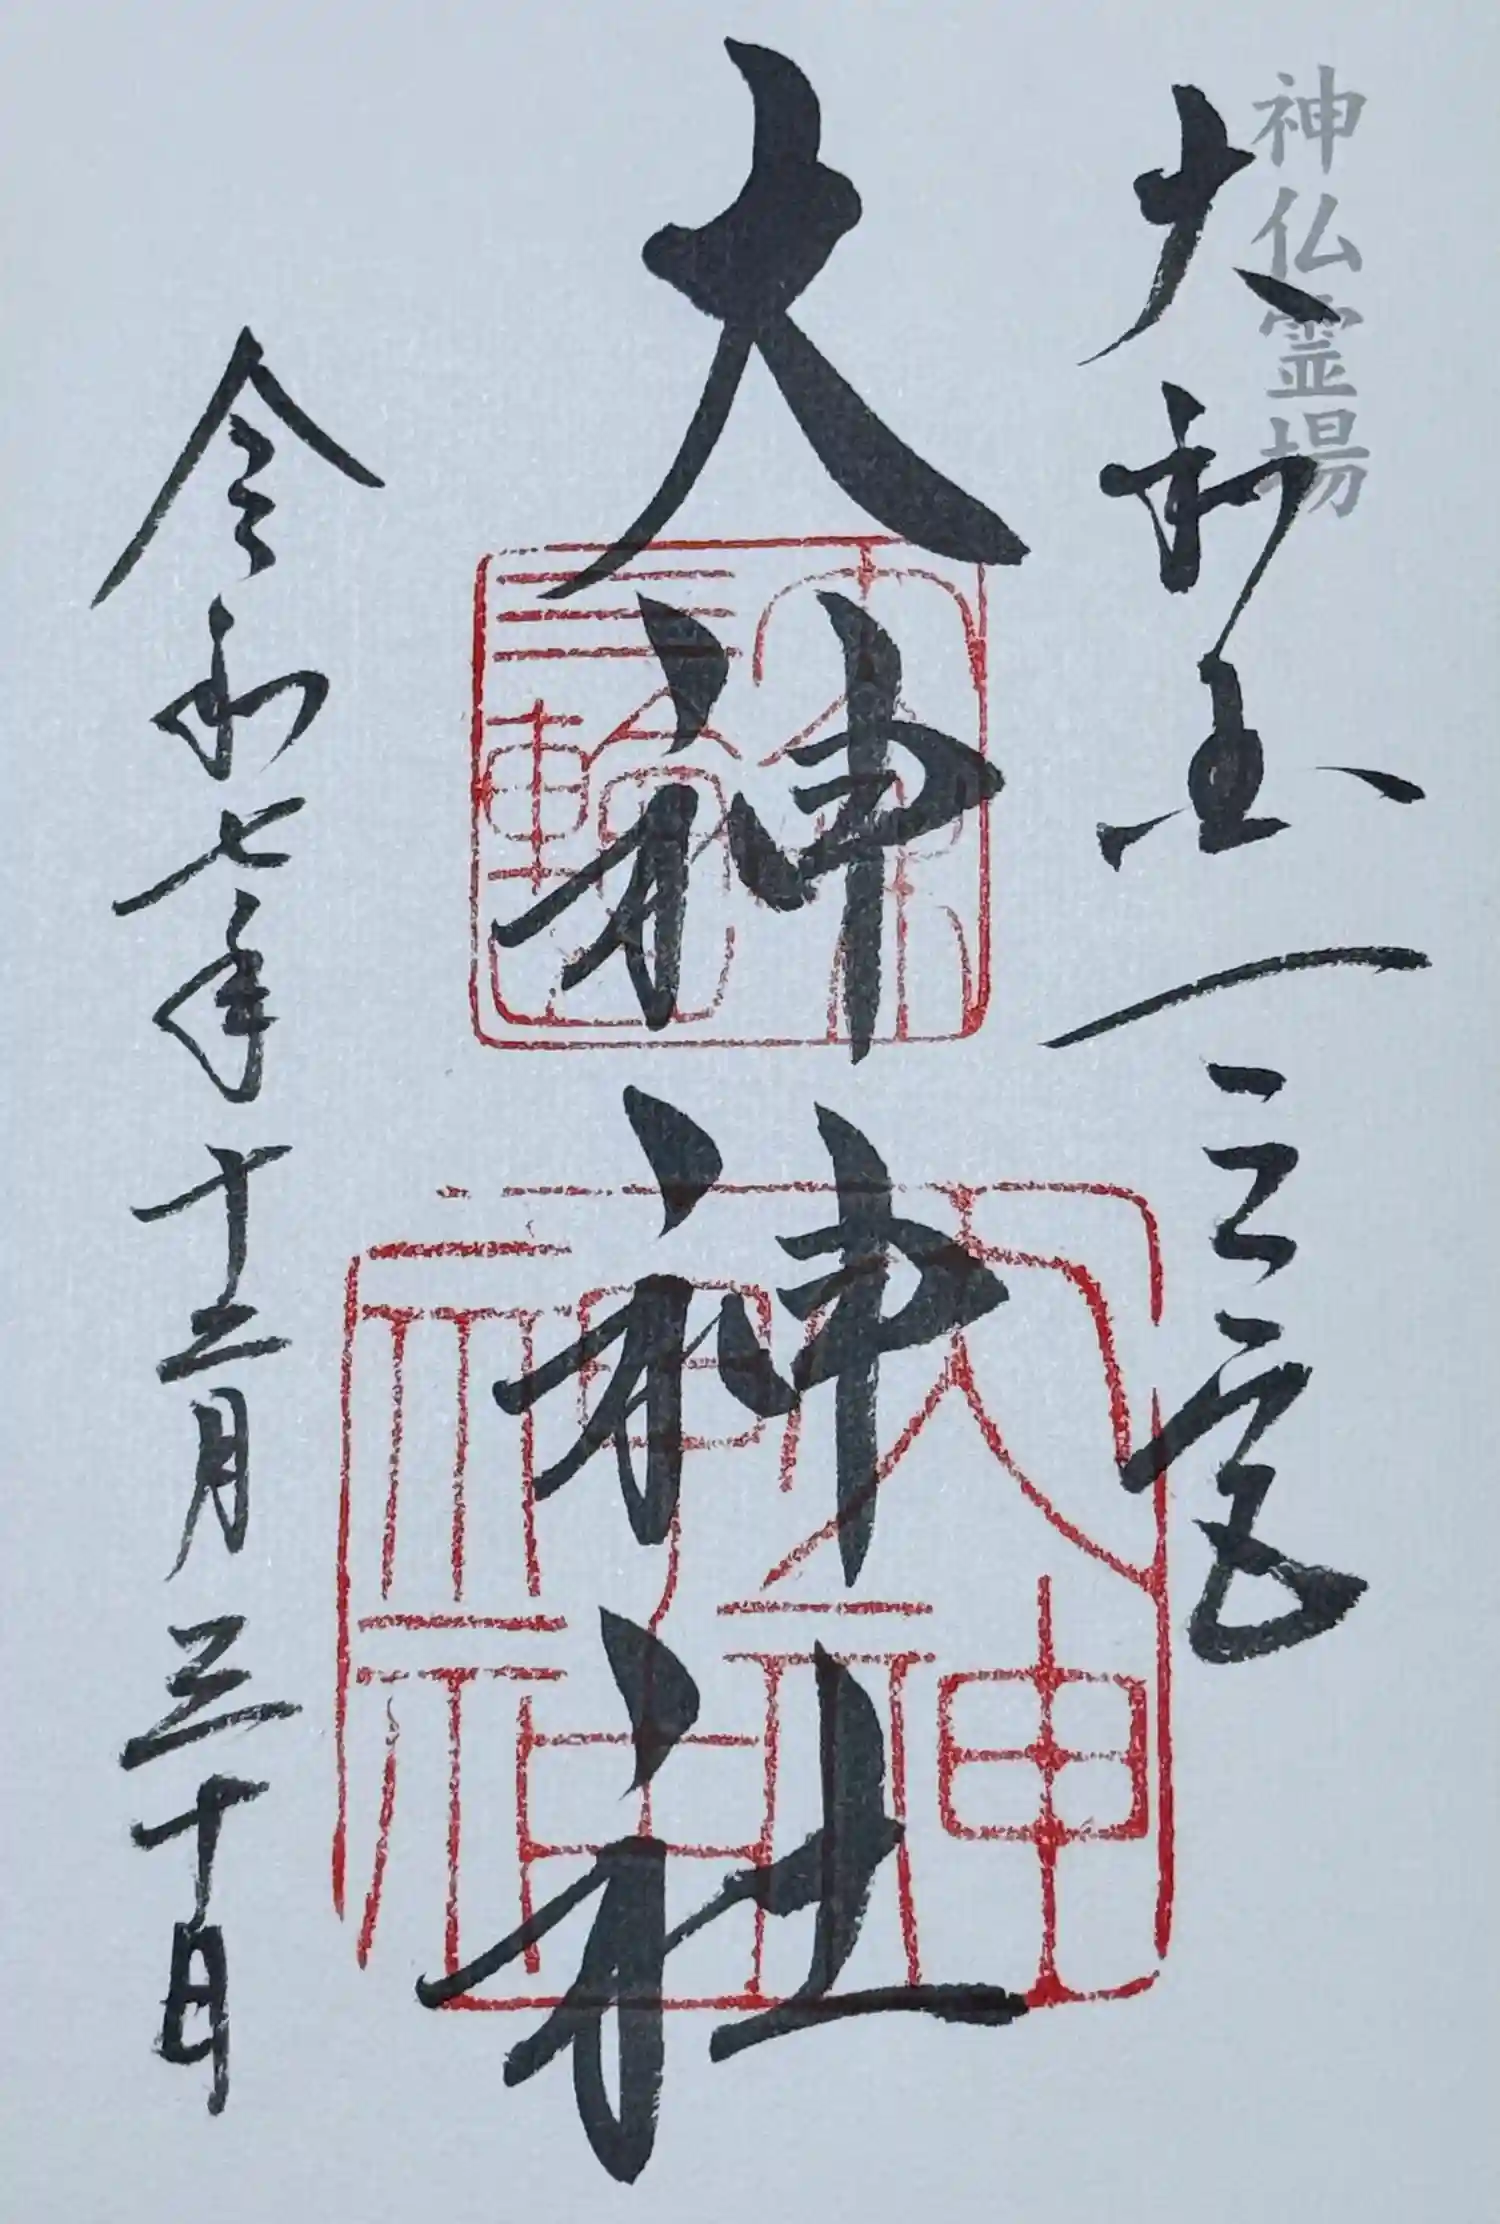 神仏霊場
大和国一之宮
大神神社
令和七年十二月三十日
大神
神社